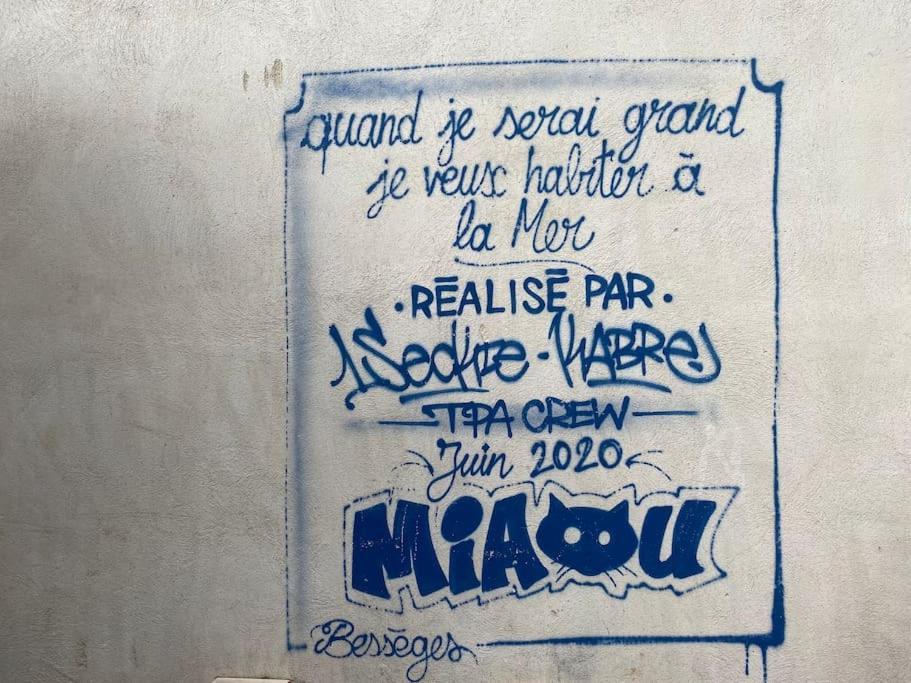 quand je serai grand
je veux habiter à
la Mer
·RÉALISÉ PAR·
1Seckte - KABRE
TPA CREW
Juin 2020
MIAOU
Bessèges